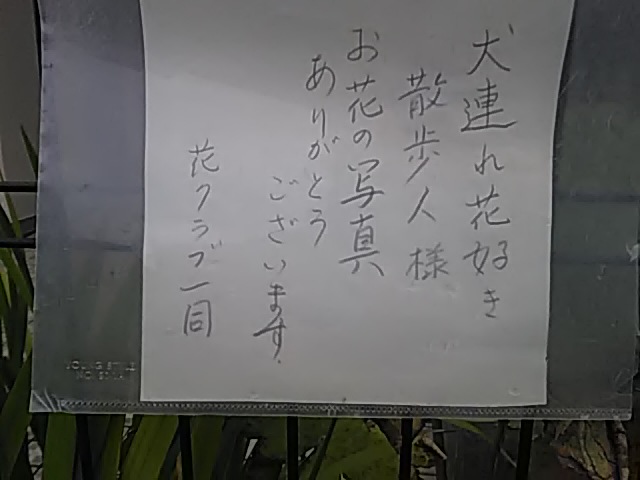 犬連れ花好き
散歩人様
お花の写真
ありがとう
ございます.
花クラブ一同